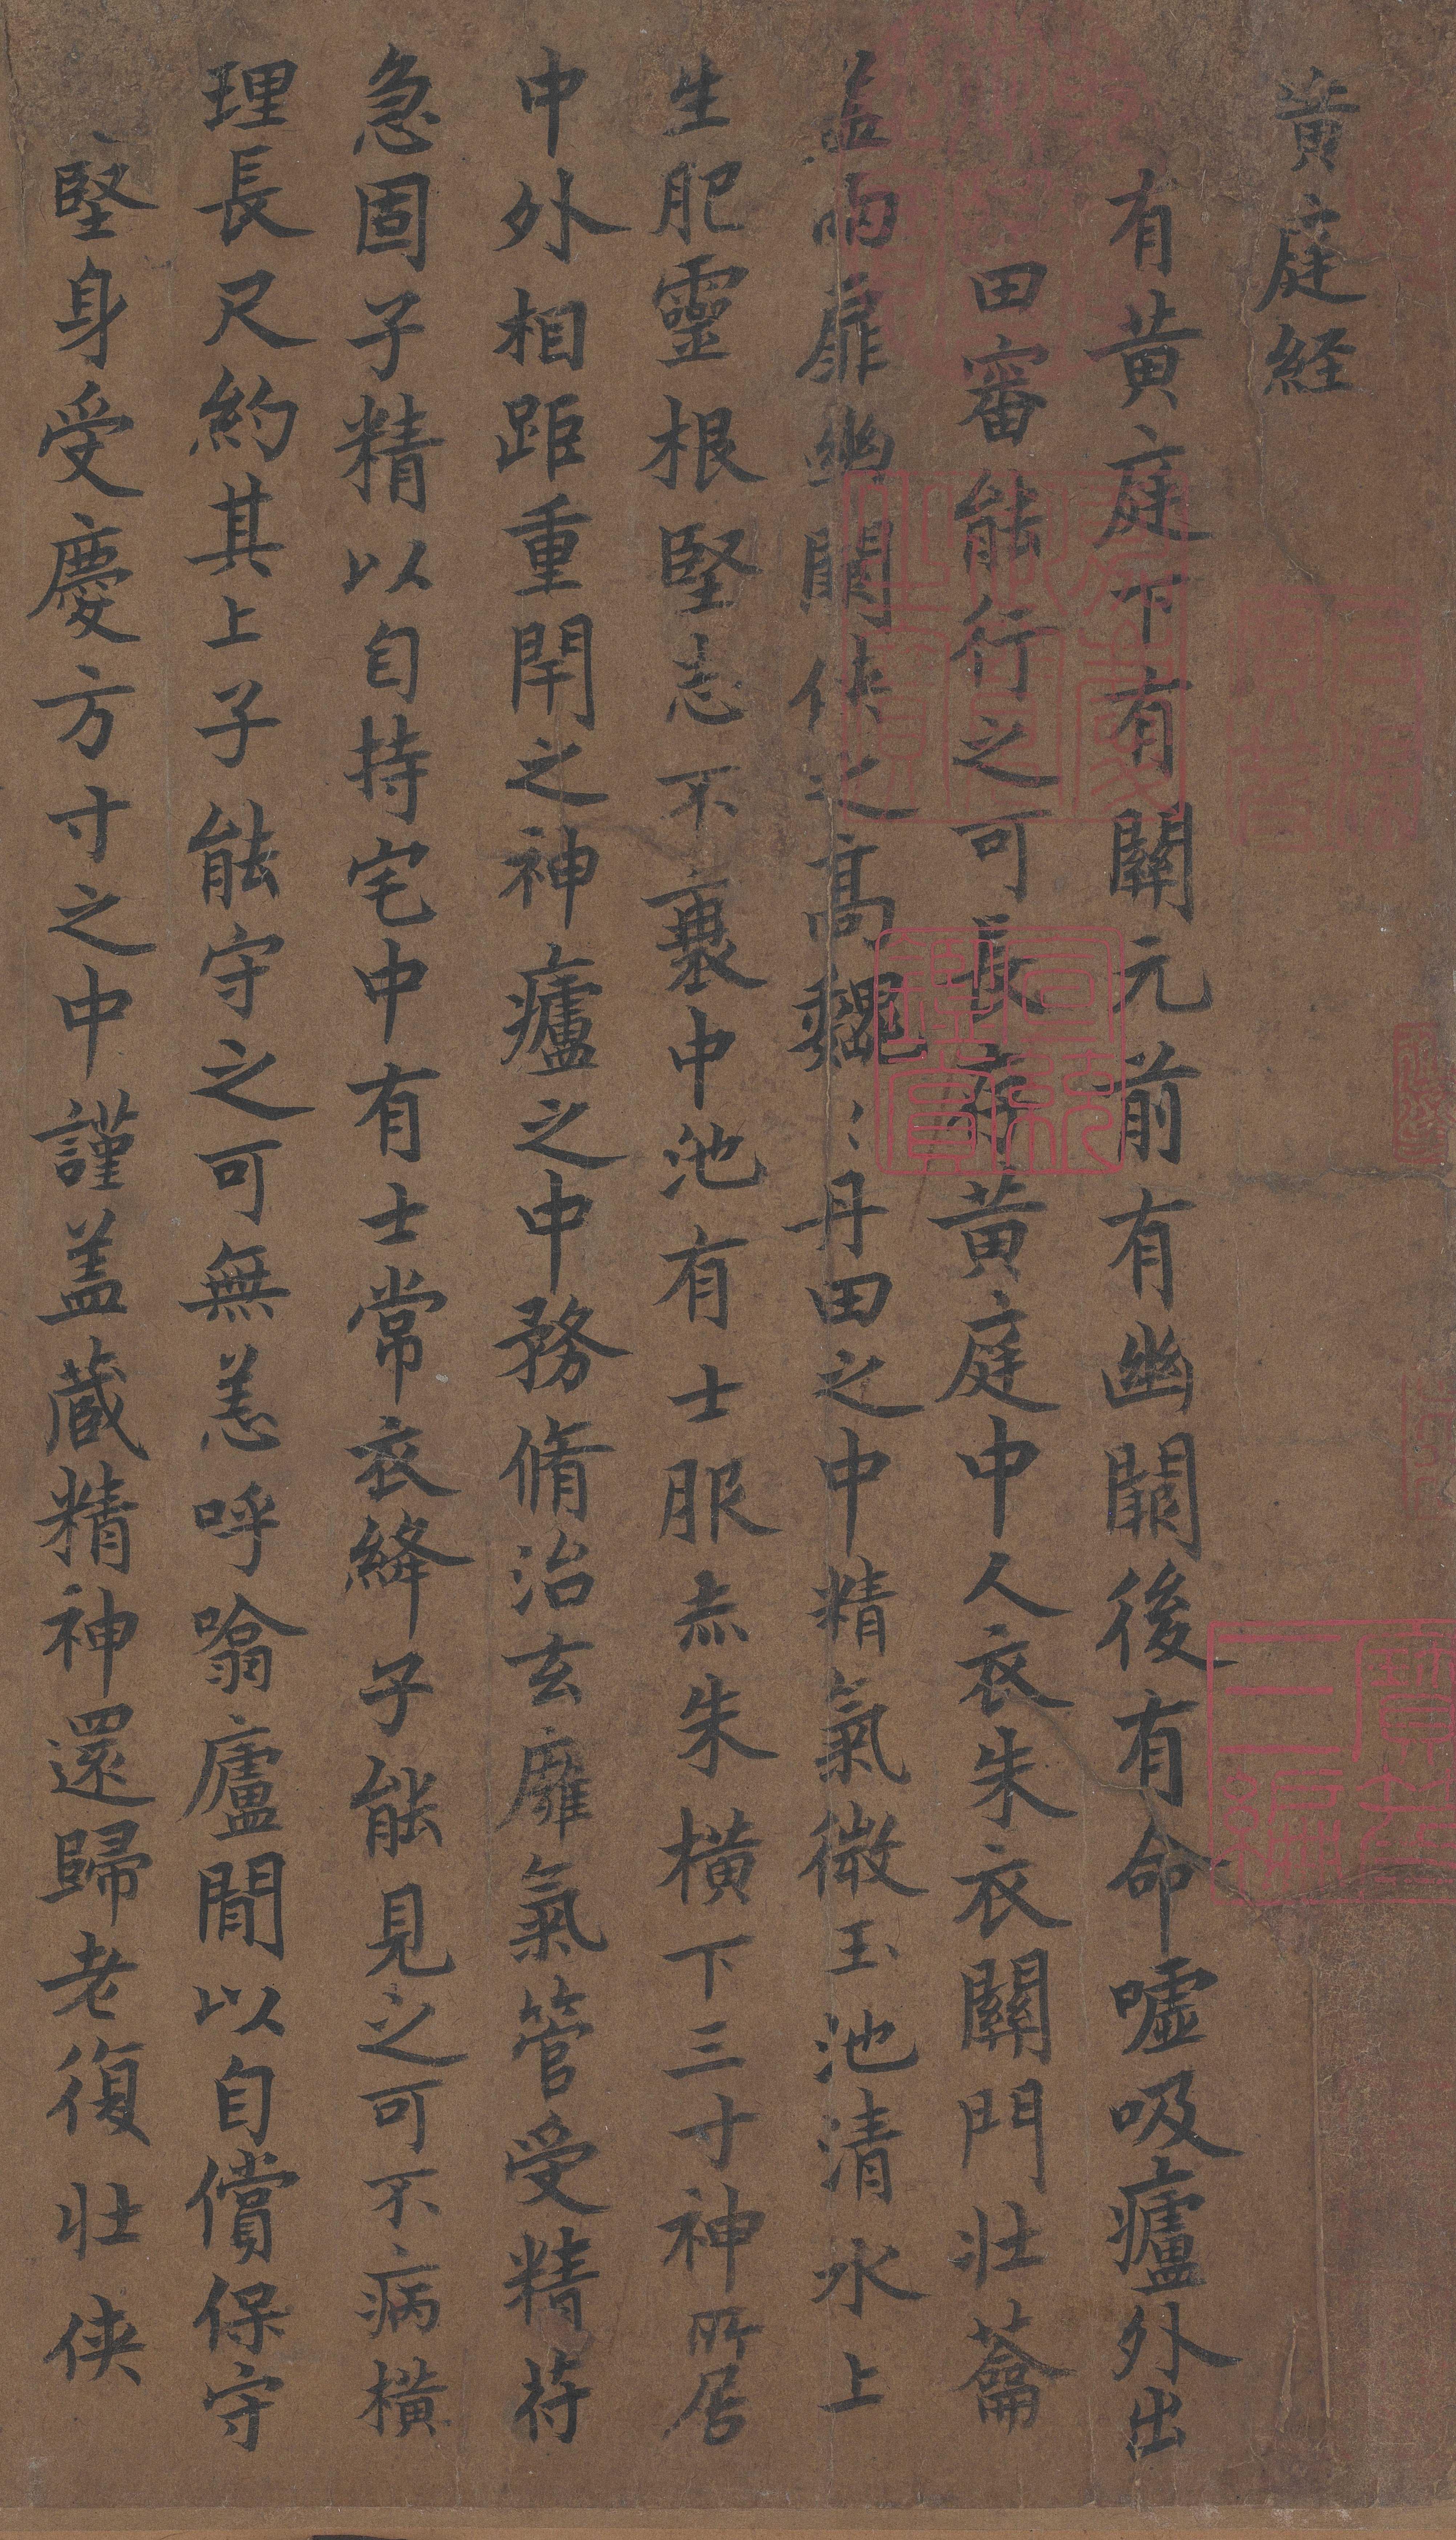 黄庭経
有黄庭下有關元前有幽闕後有命噓吸廬外出
田審能行之可長存黄庭中人衣朱衣關門壮蘥
盖兩扉幽闕侠之高巍〻丹田之中精氣微玉池清水上
生肥靈根堅志不衰中池有士服赤朱横下三寸神所居
中外相距重閇之神廬之中務脩治玄𤸰氣管受精苻
急固子精以自持宅中有士常衣絳子能見之可不病横
理長尺約其上子能守之可無恙呼噏廬間以自償保守
堅身受慶方寸之中謹盖蔵精神還歸老復壮侠